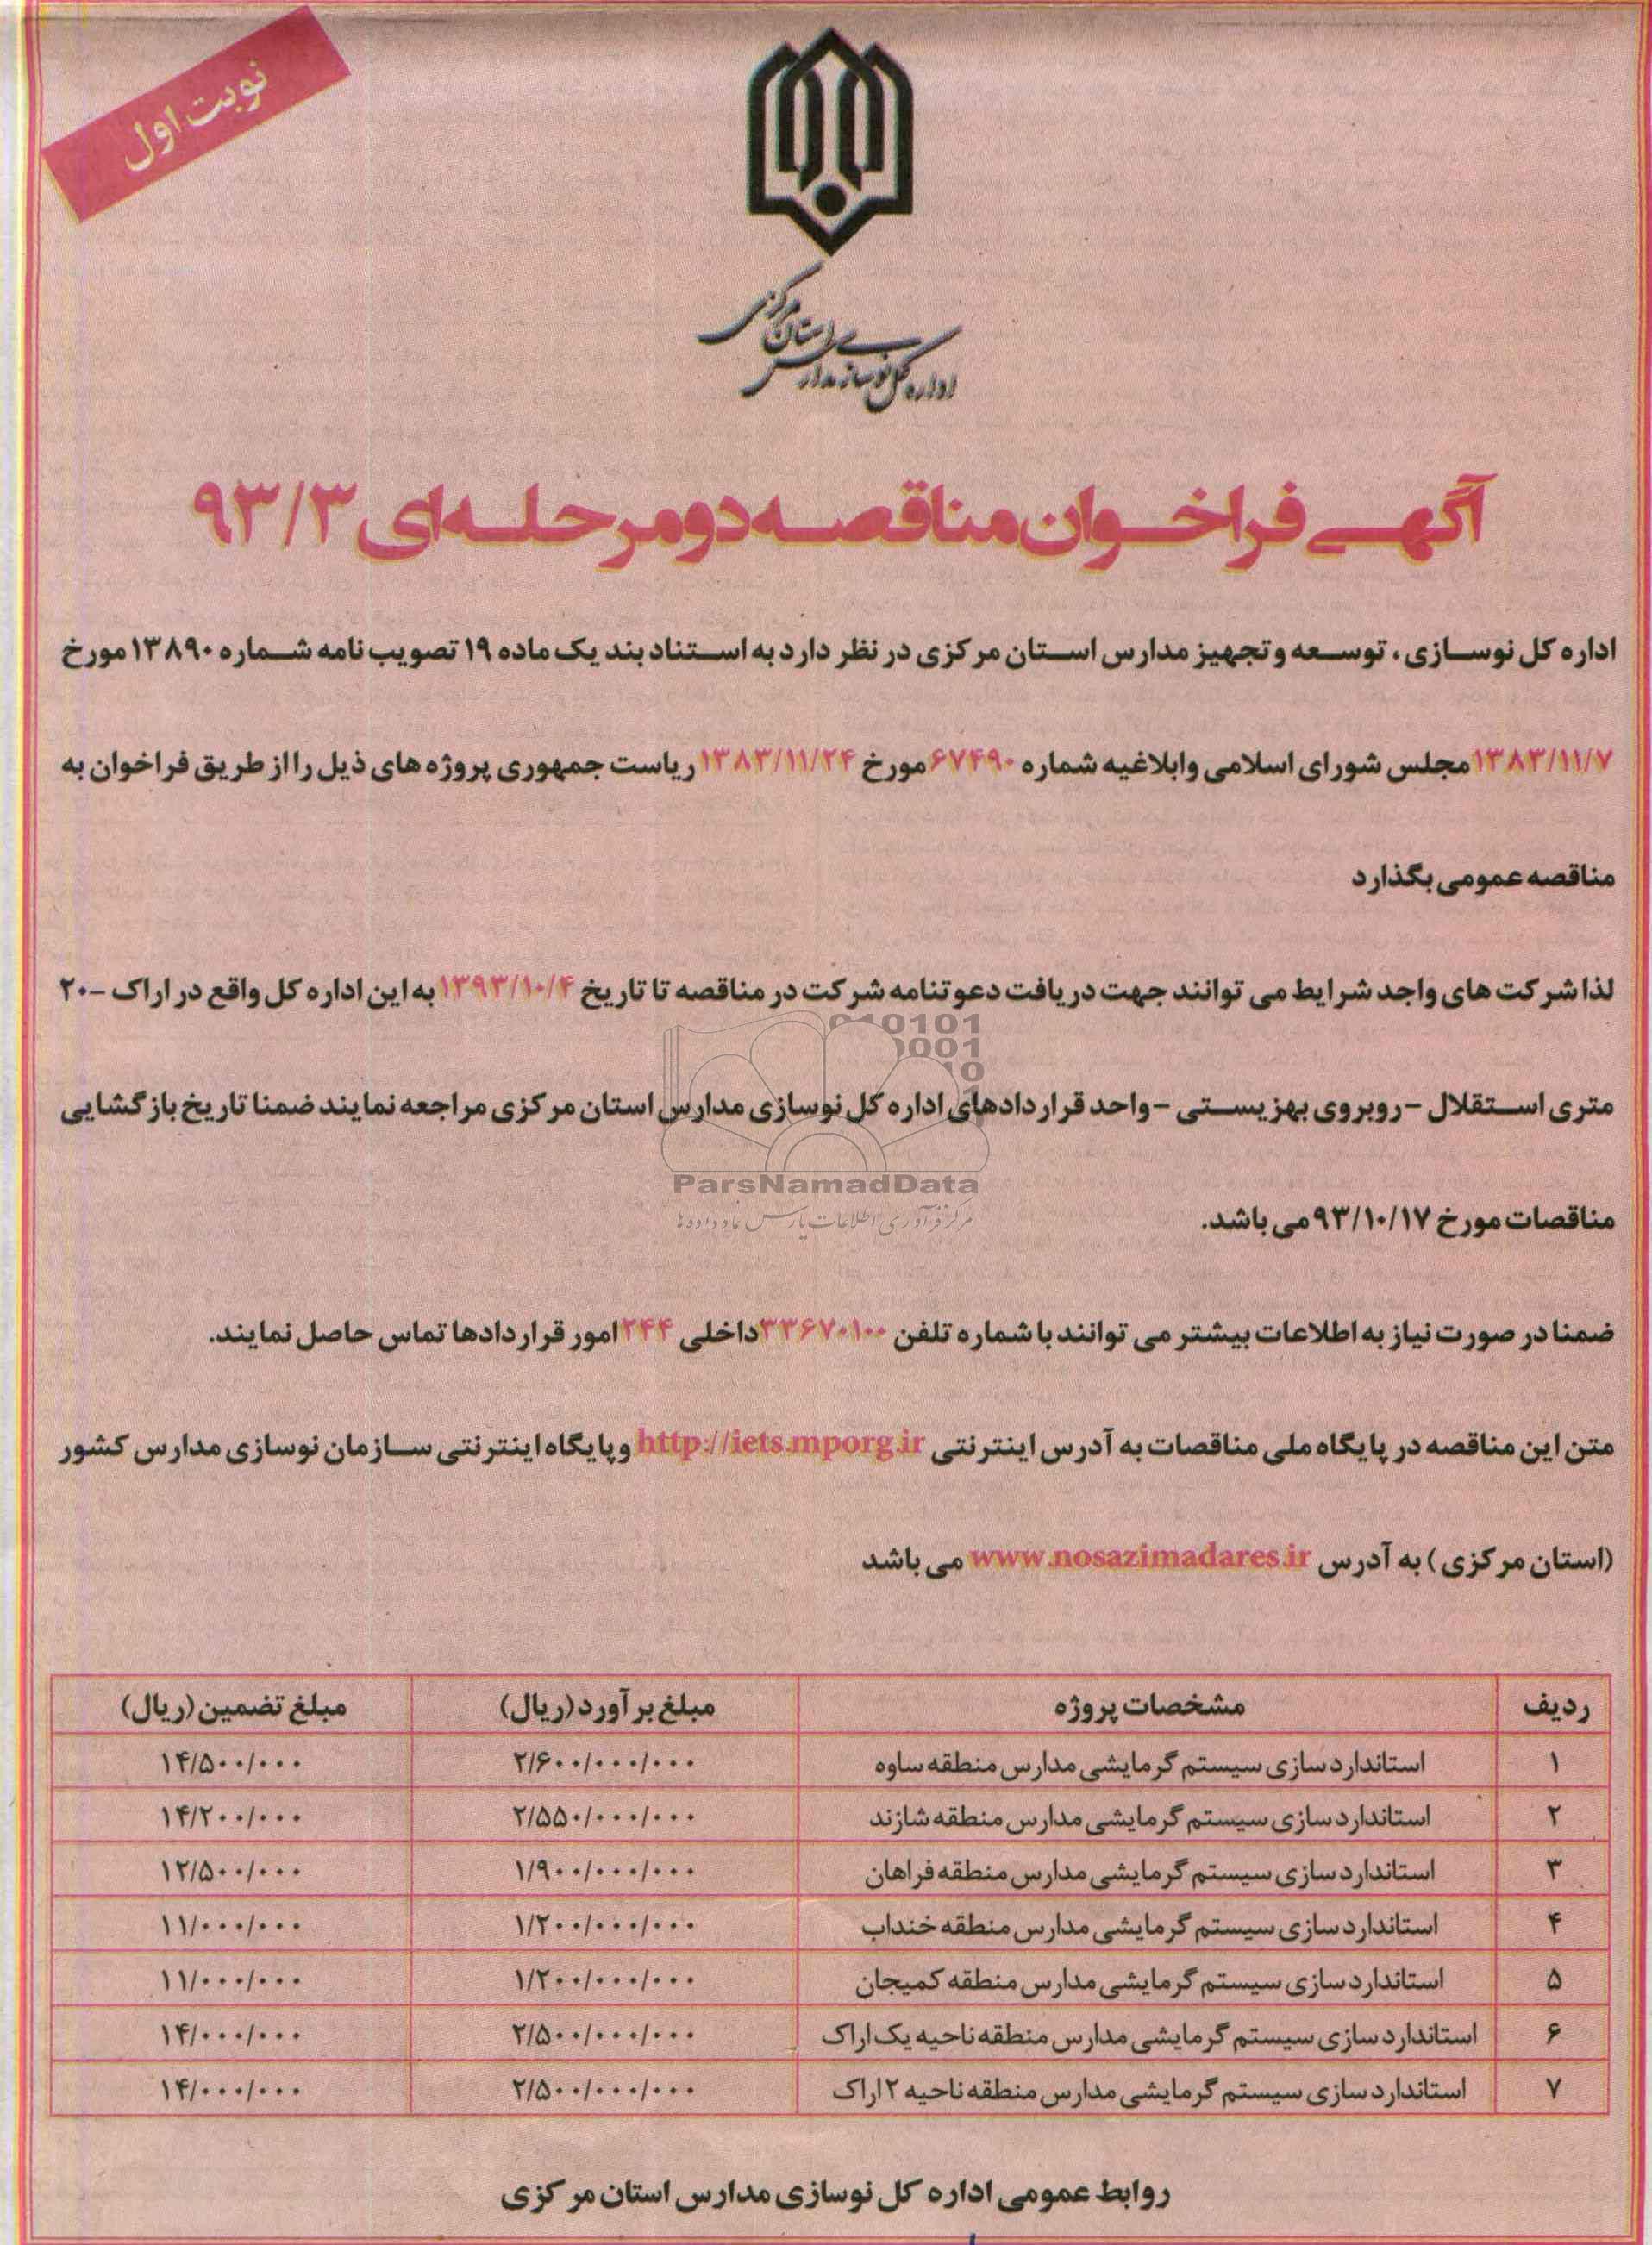 نوبت اول
اداره کل نوسازی مدارس استان مرکزی
آگهی فراخوان مناقصه دو مرحله ای ۹۳/۳
اداره کل نوسازی، توسعه و تجهیز مدارس استان مرکزی در نظر دارد به استناد بند یک ماده ۱۹ تصویب نامه شماره ۱۳۸۹۰ مورخ
۱۳۸۳/۱۱/۷ مجلس شورای اسلامی وابلاغیه شماره ۶۷۴۹۰ مورخ ۱۳۸۳/۱۱/۲۴ ریاست جمهوری پروژه های ذیل را از طریق فراخوان به
مناقصه عمومی بگذارد
لذا شرکت های واجد شرایط می توانند جهت دریافت دعوتنامه شرکت در مناقصه تا تاریخ ۱۳۹۳/۱۰/۴ به این اداره کل واقع در اراک -۲۰
متری استقلال -روبروی بهزیستی -واحد قراردادهای اداره کل نوسازی مدارس استان مرکزی مراجعه نمایند ضمنا تاریخ بازگشایی
مناقصات مورخ ۹۳/۱۰/۱۷ می باشد.
ضمنا در صورت نیاز به اطلاعات بیشتر می توانند با شماره تلفن ۳۳۶۷۰۱۰۰ داخلی ۲۴۴ امور قراردادها تماس حاصل نمایند.
متن این مناقصه در پایگاه ملی مناقصات به آدرس اینترنتی http://iets.mporg.ir و پایگاه اینترنتی سازمان نوسازی مدارس کشور
(استان مرکزی) به آدرس www.nosazimadares.ir می باشد
ردیف مشخصات پروژه مبلغ برآورد (ریال) مبلغ تضمین (ریال)
۱ استاندارد سازی سیستم گرمایشی مدارس منطقه ساوه ۲/۶۰۰/۰۰۰/۰۰۰ ۱۴/۵۰۰/۰۰۰
۲ استاندارد سازی سیستم گرمایشی مدارس منطقه شازند ۲/۵۵۰/۰۰۰/۰۰۰ ۱۴/۲۰۰/۰۰۰
۳ استاندارد سازی سیستم گرمایشی مدارس منطقه فراهان ۱/۹۰۰/۰۰۰/۰۰۰ ۱۲/۵۰۰/۰۰۰
۴ استاندارد سازی سیستم گرمایشی مدارس منطقه خنداب ۱/۲۰۰/۰۰۰/۰۰۰ ۱۱/۰۰۰/۰۰۰
۵ استاندارد سازی سیستم گرمایشی مدارس منطقه کمیجان ۱/۲۰۰/۰۰۰/۰۰۰ ۱۱/۰۰۰/۰۰۰
۶ استاندارد سازی سیستم گرمایشی مدارس منطقه ناحیه یک اراک ۲/۵۰۰/۰۰۰/۰۰۰ ۱۴/۰۰۰/۰۰۰
۷ استاندارد سازی سیستم گرمایشی مدارس منطقه ناحیه ۲ اراک ۲/۵۰۰/۰۰۰/۰۰۰ ۱۴/۰۰۰/۰۰۰
روابط عمومی اداره کل نوسازی مدارس استان مرکزی
ParsNamadData
مرکز فرآوری اطلاعات پارس نماد داده ها